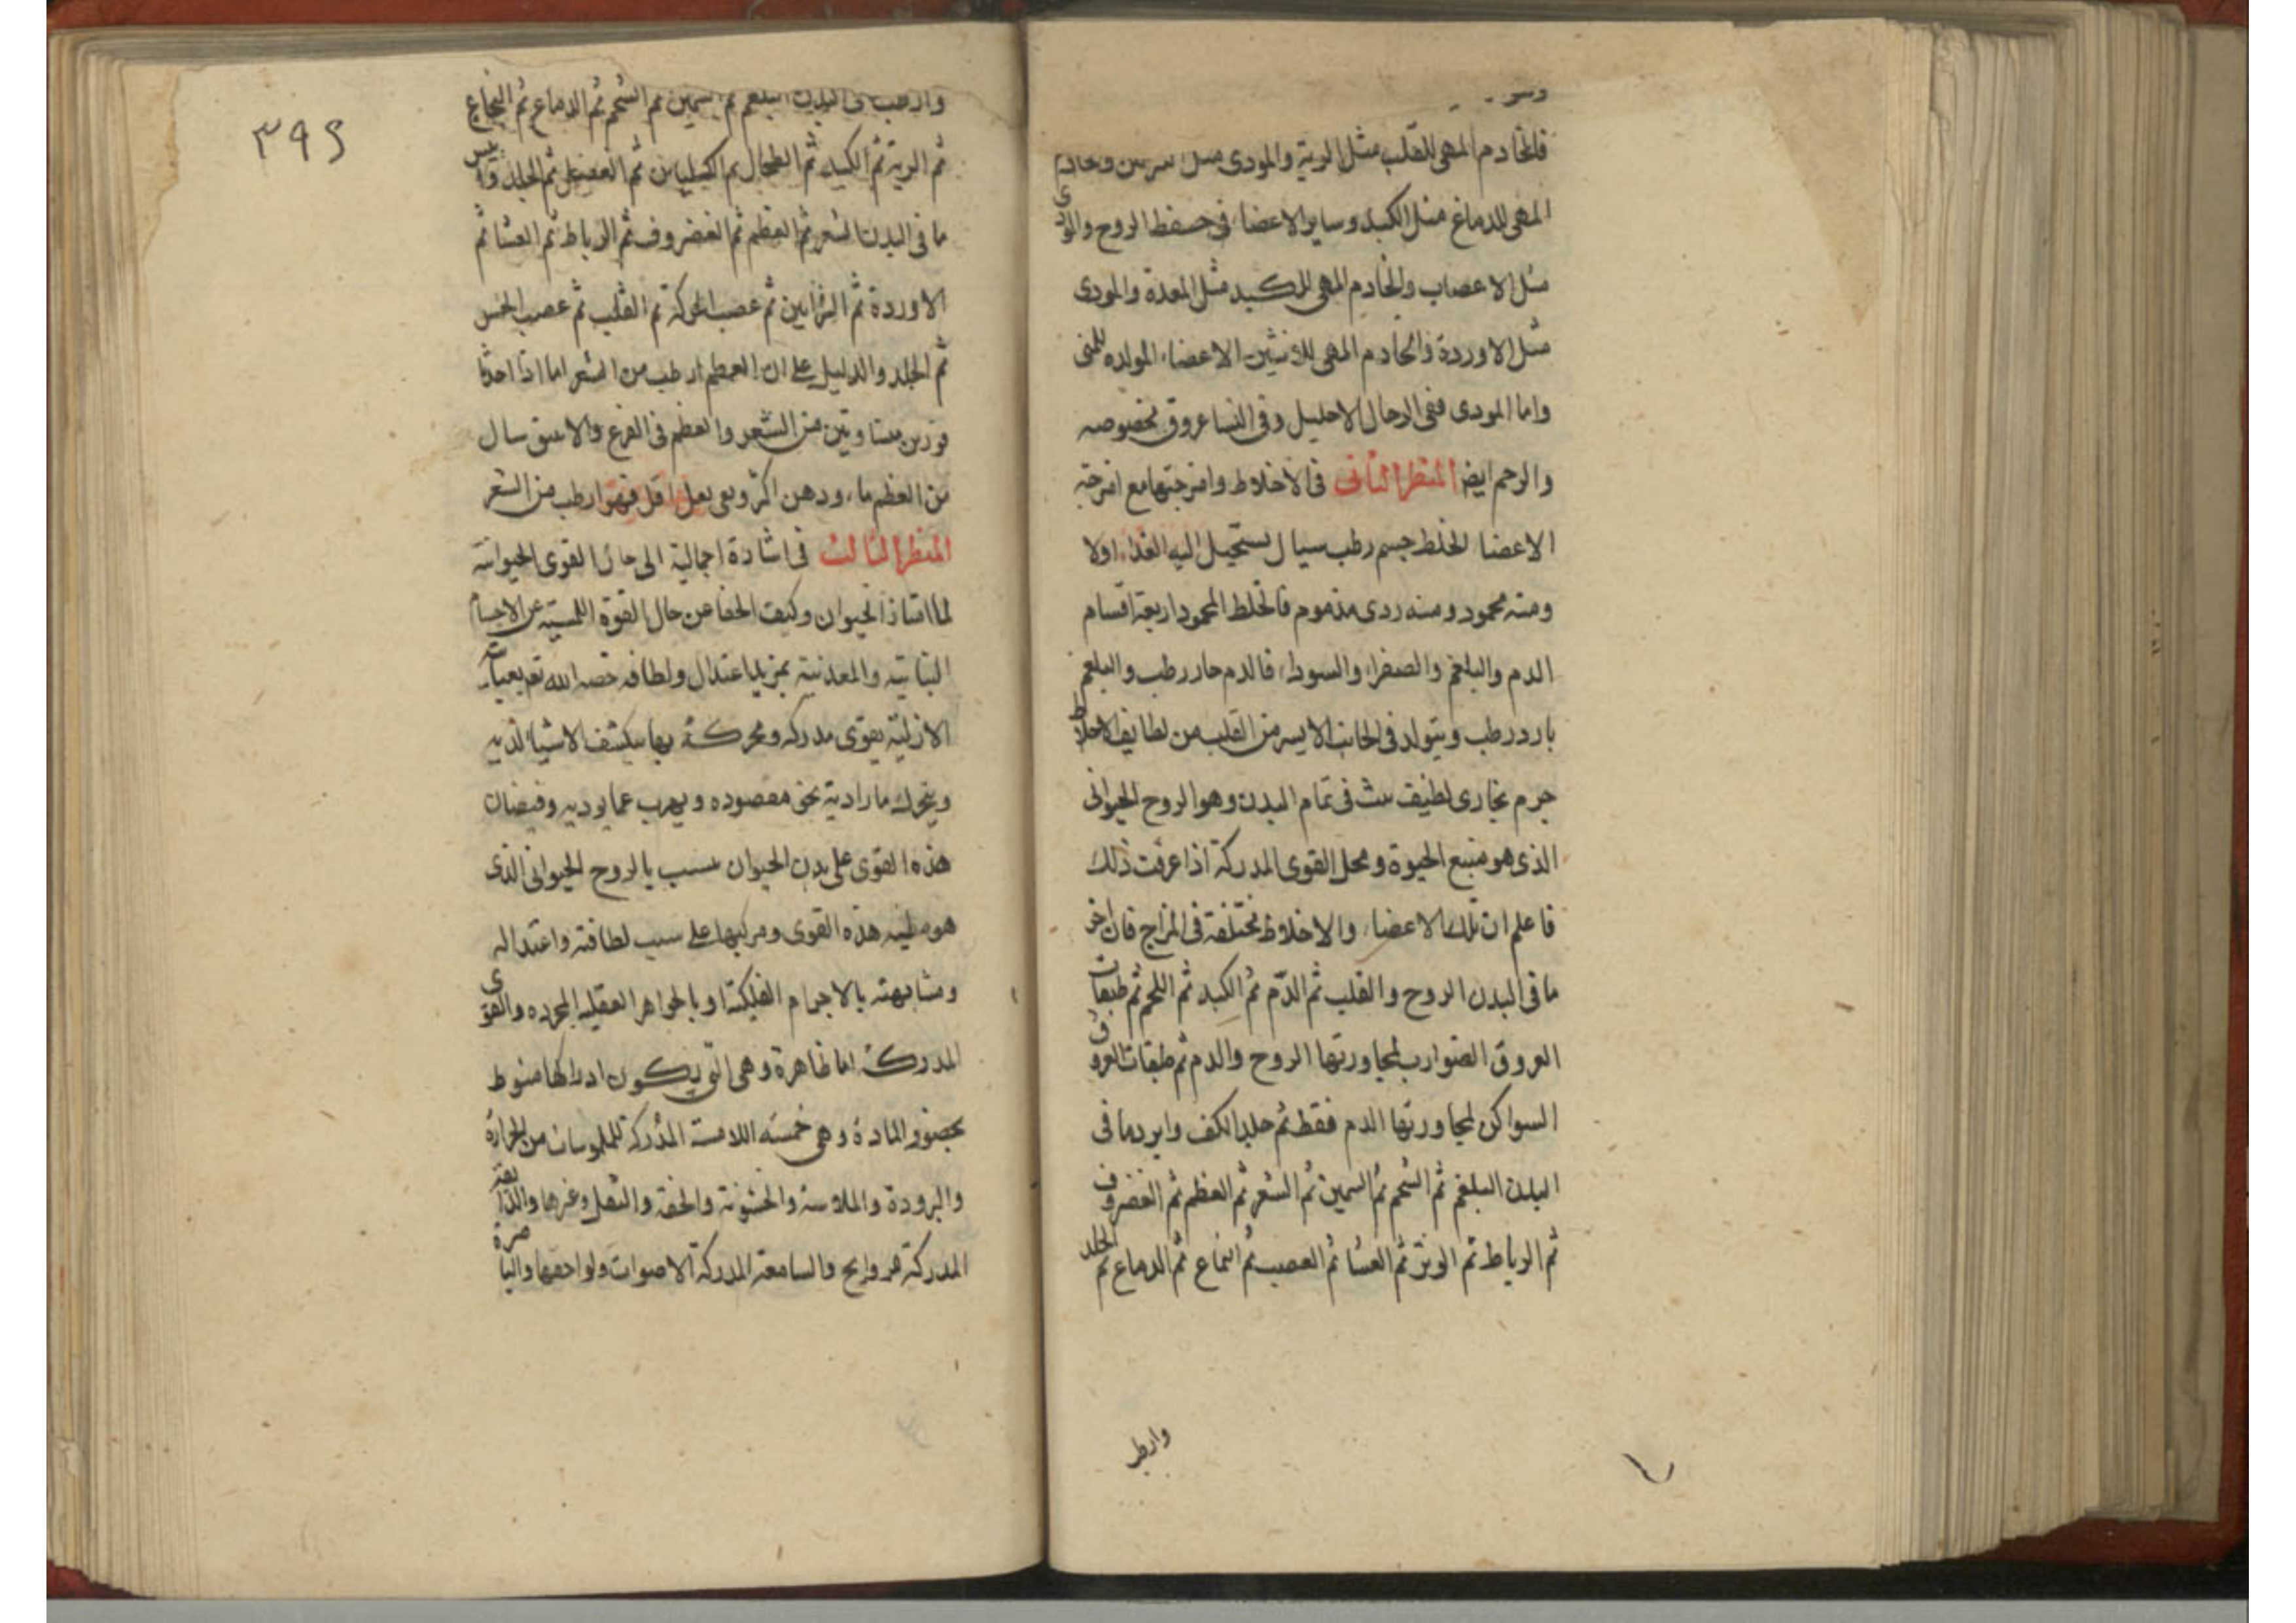 فالخادم المهي للقلب مثل الريه والمودى مثل وخادم
المهى للدماغ مثل الكبد وساير الاعضا فى حفظ الروح والمودى
مثل الاعصاب والخادم المهى للكبد مثل المعدة والمودى
مثل الاوردة والخادم المهى للانثيين الاعضاء المولده للمنى
واما المودى ففى الرجال الاحليل وفى النسا عروق مخصوصه
والرحم ايضا المنظر الثانى فى الاخلاط وامزجتها مع امزجة
الاعضا الخلط جسم رطب سيال يستحيل اليه الغذاء اولا
ومنه محمود ومنه ردى مذموم فالخلط المحمود اربعة اقسام
الدم والبلغم والصفراء والسوداء فالدم حار رطب والبلغم
بارد رطب ويتولد فى الجانب الايسر من القلب من لطايف الاخلاط
جرم بخارى لطيف ينبث فى تمام البدن وهو الروح الحيوانى
الذى هو منبع الحيوة ومحل القوى المدركة اذا عرفت ذلك
فاعلم ان تلك الاعضاء والاخلاط مختلفة فى المزاج فان احر
ما فى البدن الروح والقلب ثم الدّم ثم الكبد ثم اللحم ثم طبقات
العروق الضوارب لمجاورتها الروح والدم ثم طبقات العروق
السواكن لمجاورتها الدم فقط ثم جلد الكف وابرد ما فى
البدن البلغم ثم الشحم ثم السمين ثم الشعر ثم العظم ثم الغضروف
ثم الرباط ثم الوتر ثم الغشا ثم العصب ثم النخاع ثم الدماغ ثم الجلد
وارطب
٣٩٢
وارطب ما فى البدن البلغم ثم السمين ثم الشحم ثم الدماغ ثم النخاع
ثم الرية ثم الكبد ثم الطحال ثم الكليتان ثم العضل ثم الجلد وايبس
ما فى البدن الشعر ثم العظم ثم الغضروف ثم الرباط ثم الغشا ثم
الاوردة ثم الشرايين ثم عصب الحركة ثم القلب ثم عصب الحس
ثم الجلد والدليل على ان العظم ارطب من الشعر اما اذا اخذنا
قدرين متساويين من الشعر والعظم فى القرع والانبيق سال
من العظم ماء ودهن اكثر وبقى ثقل اقل فهو ارطب من الشعر
المنظر الثالث فى اشارة اجمالية الى حال القوى الحيوانية
لما امتاز الحيوان وكيف الحفا عن حال القوة اللمسية عن الاجسام
النباتية والمعدنية بمزيد اعتدال ولطافه خصه الله تع بعنايته
الازلية بقوى مدركه ومحركة بها ينكشف الاشيا لديه
ويتحرك بارادية نحو مقصوده ويهرب عما يوديه وفيضان
هذه القوى على بدن الحيوان بسبب يالروح الحيوانى الذى
هو مطيه هذه القوى ومركبها على سبب لطافته واعتداله
ومشابهته بالاجرام الفلكية او بالجواهر العقليه المجرده والقوى
المدركة اما ظاهرة وهى التى يكون ادراكها منوط
بحضور المادة وهى خمسه اللامسة المدركة للملموسات من الحرارة
والبرودة والملاسة والخشونة والخفة والثقل وغيرها والذايقة
المدركة للروايح والسامعة المدركة الاصوات ولواحقها والباصرة